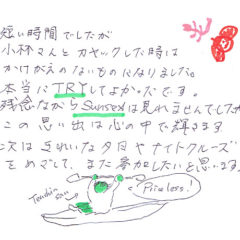 短い時間でしたが
小林さんとカヤックした時は
かけがえのないものになりました。
本当にTRYしてよかたです。
残念ながらSunsetは見れませんでしたが
この思い出は心の中で輝きます
次はきれいな夕日やナイトクルーズ
をめざして、また参加したいと思います
Priceless!